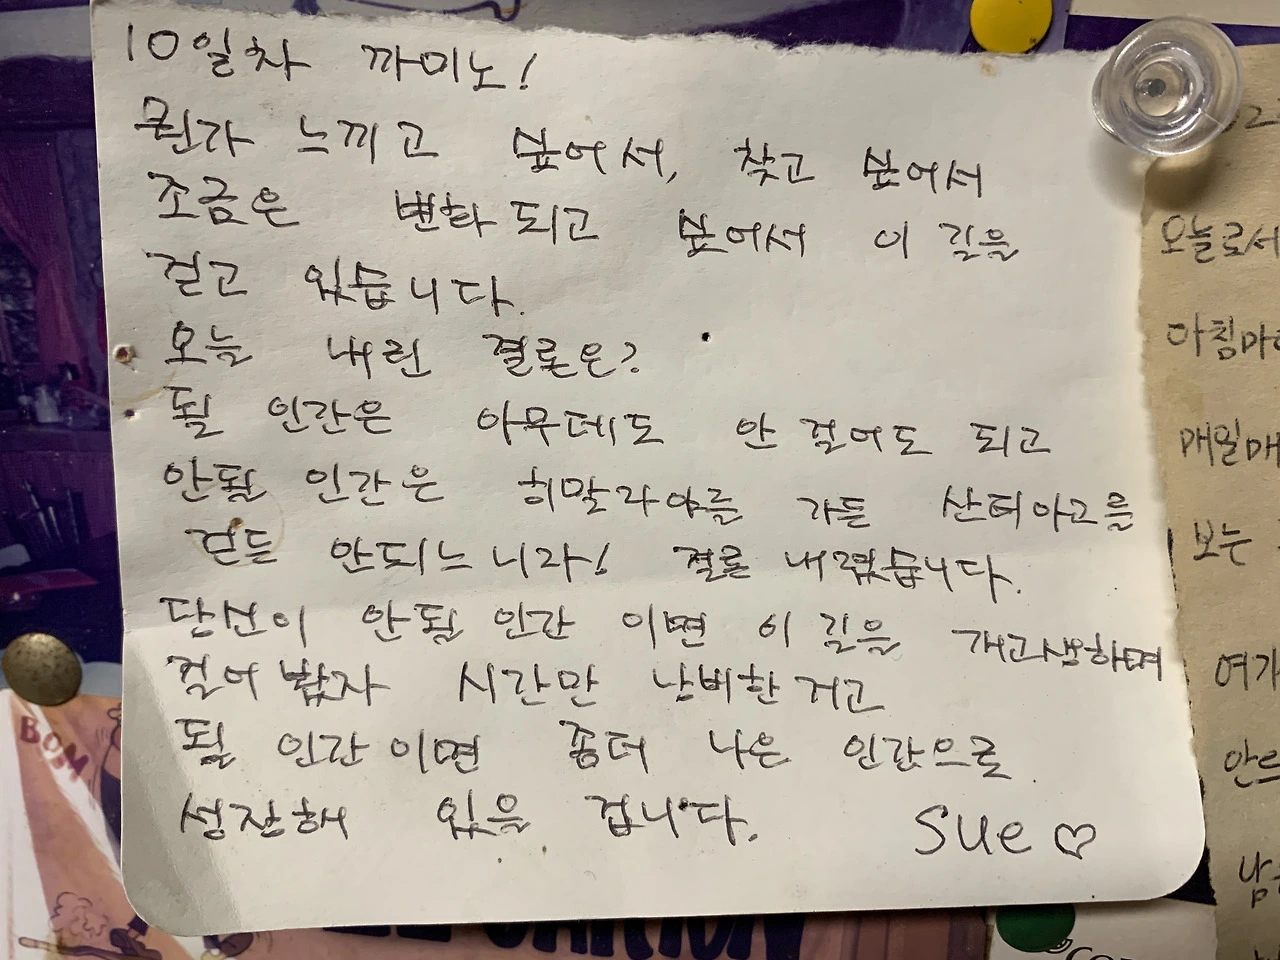 10일차 까미노!
뭔가 느끼고 싶어서, 찾고 싶어서
조금은 변화 되고 싶어서 이 길을
걷고 있습니다.
오늘 내린 결론은?
될 인간은 아무데도 안 걸어도 되고
안될 인간은 히말라야를 가든 산티아고를
걷든 안되느니라! 결론 내렸습니다.
당신이 안될 인간 이면 이 길을 개고생하며
걸어 봤자 시간만 낭비한 거고
될 인간 이면 좀더 나은 인간으로
성장해 있을 겁니다. Sue ♡
오늘로서
아침마
매일매
보는
여기
안
BOM